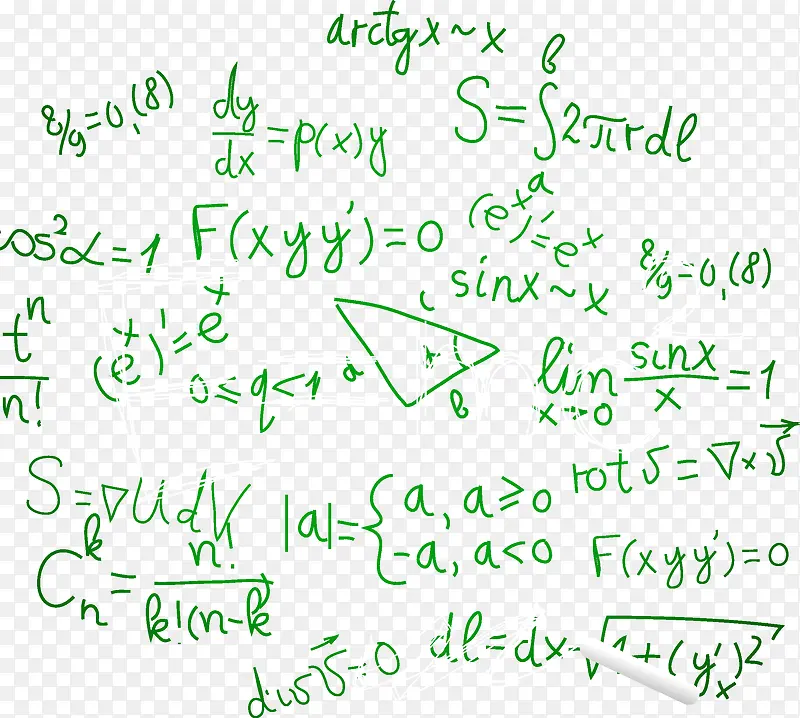 arctgx ~ x
8/9=0,(8)
dy/dx = p(x)y
S=∫ₐᵇ2πrdl
cos²α=1
F(xyy')=0
(eˣ)'=eˣ
sinx ~ x
8/9=0,(8)
tⁿ/n!
(eˣ)'=eˣ
0≤q<1
a
c
b
lim x→0 sinx/x = 1
S=∇UdV
|a|={a, a≥0
-a, a<0
rot v = ∇×v⃗
Cₙᵏ = n!/k!(n-k
F(xyy')=0
div v⃗=0
dl=dx√1+(y'ₓ)²